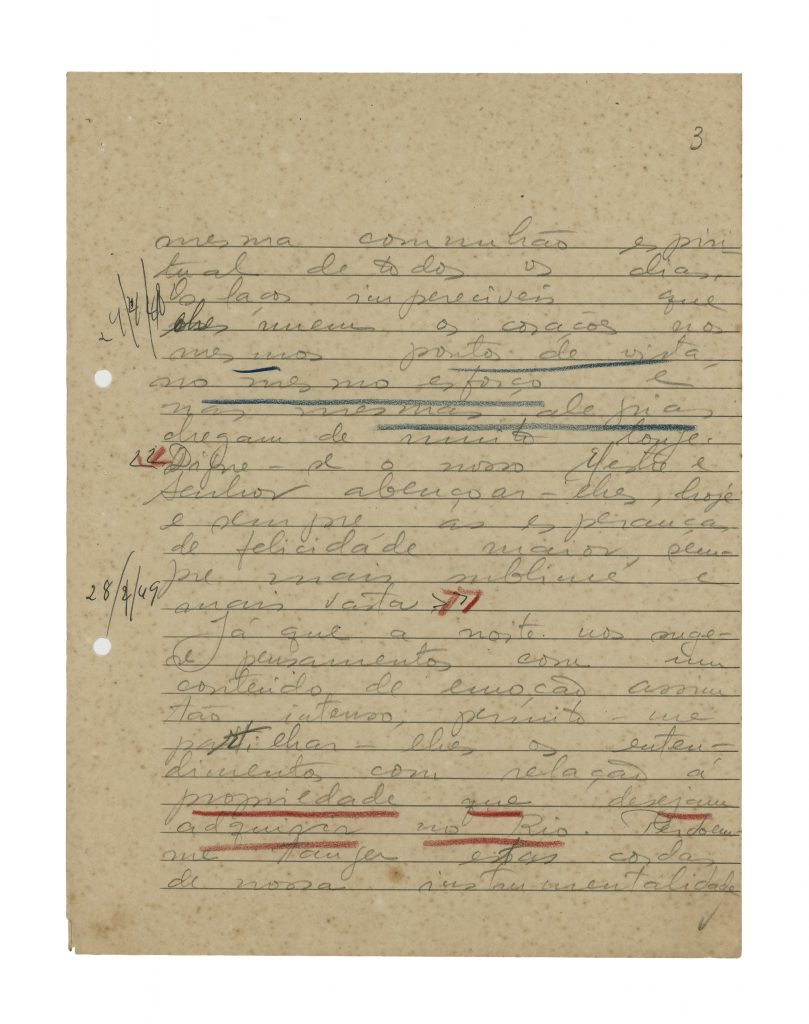 3
mesma communhão espiri-
tual de todos os dias.
Os laços imperecíveis que
lhes unem os corações nos
mesmos pontos de vista,
no mesmo esforço e
nas mesmas alegrias
chegam de muito longe.
"Digne-se o nosso Mestre e
Senhor abençoar-lhes, hoje
e sempre as esperanças
de felicidade maior, sem-
pre mais sublime e
28/2/49
mais vasta"
Já que a noite nos suge-
re pensamentos com um
conteúdo de emoção assim
tão intenso, permito-me
partilhar-lhes os enten-
dimentos com relação á
propriedade que desejam
adquirir no Rio. Perdoem-
me tanger estas cordas
de nossa instrumentalidade